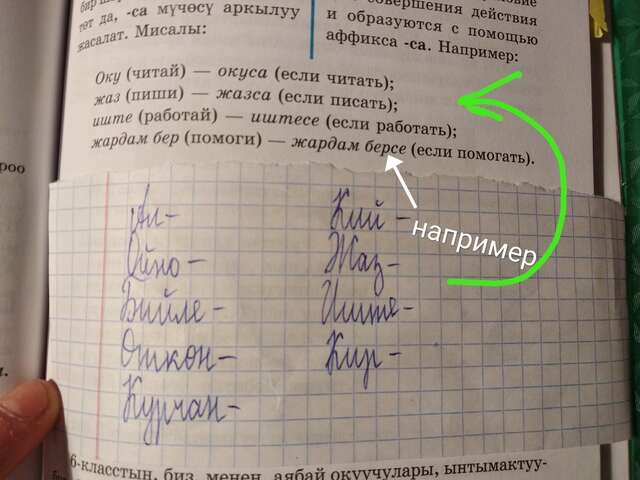 совершения действия
тёт да, -са мүчөсү аркылуу
и образуются с помощью
жасалат. Мисалы:
аффикса -са. Например:
Оку (читай) — окуса (если читать);
жаз (пиши) — жазса (если писать);
иште (работай) — иштесе (если работать);
жардам бер (помоги) — жардам берсе (если помогать).
например
Ал-
Ойно-
Бийле-
Откон-
Курчан-
Кий-
Жаз-
Иште-
Кир-
6-класстын, биз менен, аябай окуучулары, ынтымактуу-